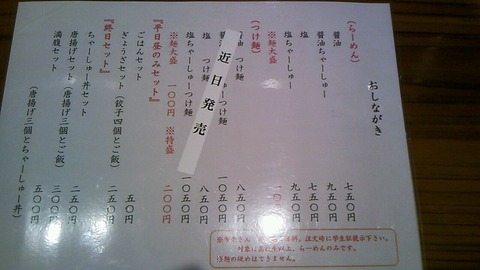 おしながき
(らーめん)
醤油 七五〇円
醤油ちゃーしゅー 九五〇円
塩 七五〇円
塩ちゃーしゅー 九五〇円
※麺大盛 一〇〇円
(つけ麺)
醤油 つけ麺 八五〇円
つけ麺 一〇五〇円
塩 つけ麺 八五〇円
塩ちゃーしゅーつけ麺 一〇五〇円
※麺大盛 一〇〇円 ※特盛 二〇〇円
近日発売
『平日昼のみセット』
ごはんセット 五〇円
ぎょうざセット (餃子四個とご飯) 二五〇円
『終日セット』
ちゃーしゅー丼セット 二五〇円
唐揚げセット (唐揚げ三個とご飯) 三〇〇円
満腹セット (唐揚げ三個とちゃーしゅー丼) 五〇〇円
注文時に学生証提示下さい。
対象は高校生以上、らーめんのみです。
※麺の硬めはできません。